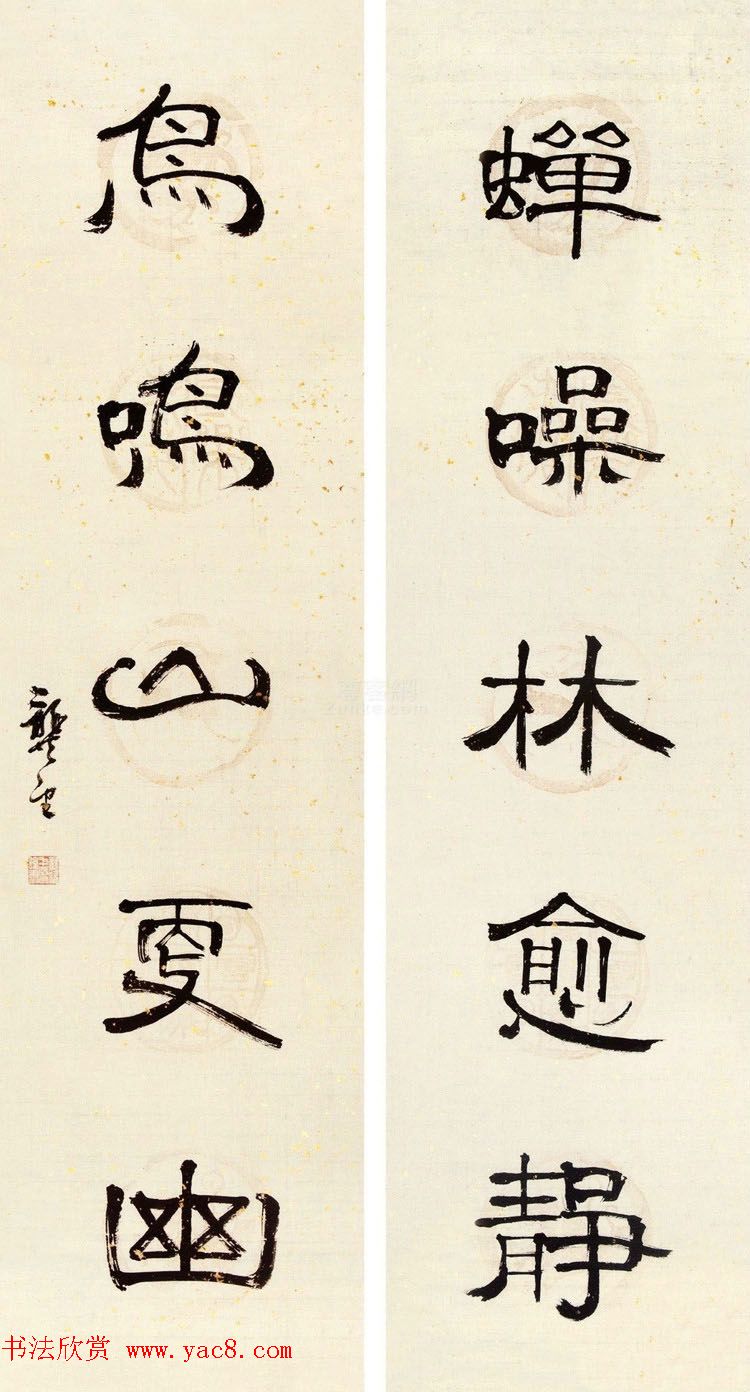 蟬噪林愈静
鳥鳴山更幽
龔望
书法欣赏 www.yac8.com